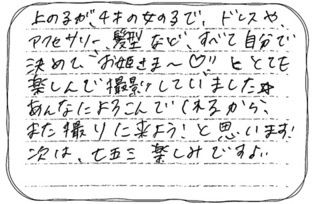 上の子が、4才の女の子で、ドレスや、
アクセサリー、髪型など、すべて自分で
決めて、お姫さま〜♡!! ととても
楽しんで撮影していました☆
あんなによろこんでくれるから、
また撮りに来よう!と思います!
次は、七五三 楽しみですよ!